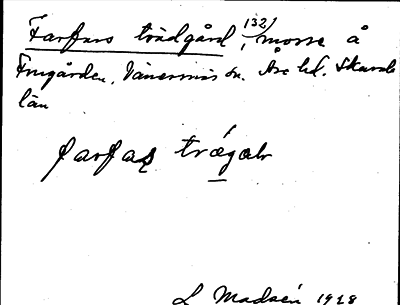 Farfars trädgård, 132) mosse å
Frugården, Vänersnäs sn. Åse hd. Skarab.
län
farfas trǽgalr
L Madsén 1928